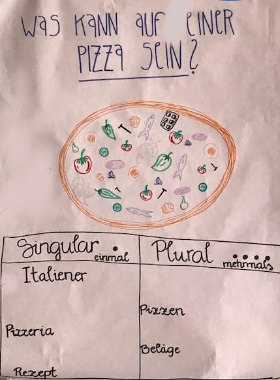 WAS KANN AUF EINER
PIZZA SEIN?
Singular einmal
Plural mehrmals
Italiener
Pizzen
Pizzeria
Beläge
Rezept